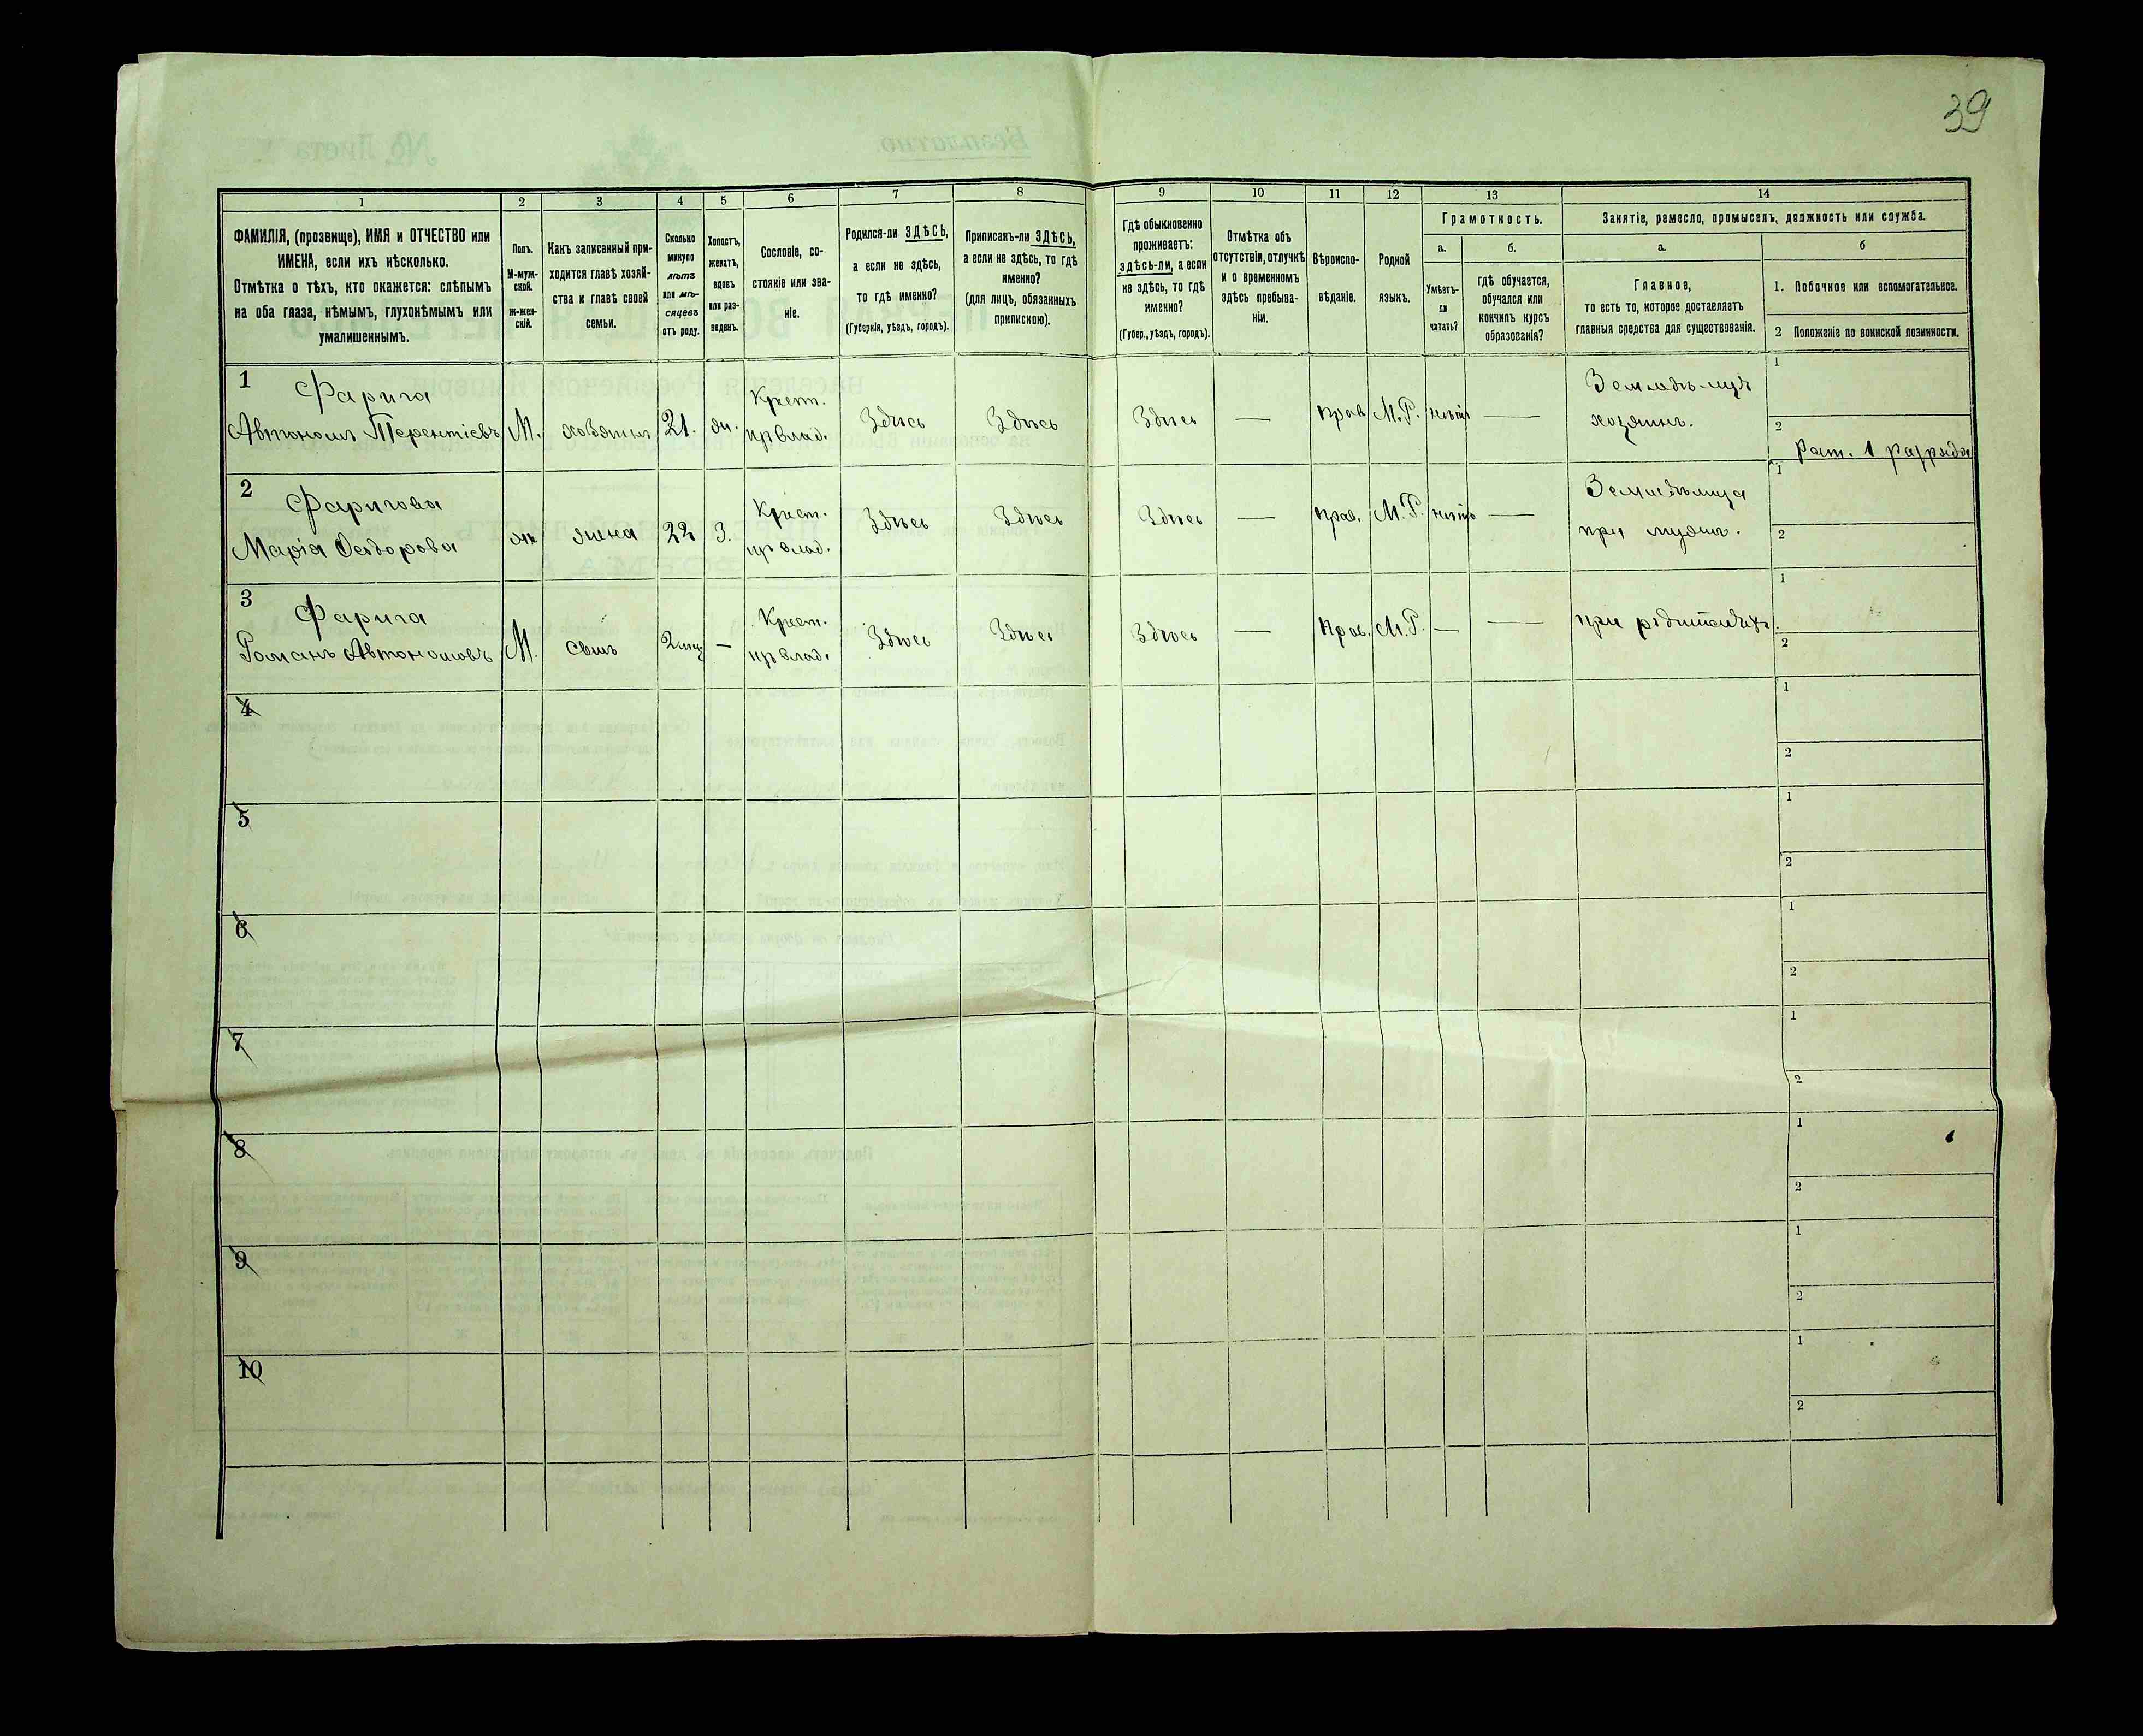 39
1 2 3 4 5 6 7 8 9 10 11 12 13 14
ФАМИЛІЯ, (прозвище), ИМЯ и ОТЧЕСТВО или
ИМЕНА, если ихъ нѣсколько.
Отмѣтка о тѣхъ, кто окажется: слѣпымъ
на оба глаза, нѣмымъ, глухонѣмымъ или
умалишеннымъ.
Полъ.
М-муж-
ской.
ж-жен-
скій.
Какъ записанный при-
ходится главѣ хозяй-
ства и главѣ своей
семьи.
Сколько
минуло
лѣтъ
или мѣ-
сяцевъ
отъ роду.
Холостъ,
женатъ,
вдовъ
или раз-
веденъ.
Сословіе, со-
стояніе или зва-
ніе.
Родился-ли ЗДѢСЬ,
а если не здѣсь,
то гдѣ именно?
(Губернія, уѣздъ, городъ).
Приписанъ-ли ЗДѢСЬ,
а если не здѣсь, то гдѣ
именно?
(для лицъ, обязанныхъ
припискою).
Гдѣ обыкновенно
проживаетъ:
здѣсь-ли, а если
не здѣсь, то гдѣ
именно?
(Губер., уѣздъ, городъ).
Отмѣтка объ
отсутствіи, отлучкѣ
и о временномъ
здѣсь пребыва-
ніи.
Вѣроиспо-
вѣданіе.
Родной
языкъ.
Грамотность.
а. б.
Умѣетъ-
ли
читать?
гдѣ обучается,
обучался или
кончилъ курсъ
образованія?
Занятіе, ремесло, промыселъ, должность или служба.
а. б
Главное,
то есть то, которое доставляетъ
главныя средства для существованія.
1. Побочное или вспомогательное.
2 Положеніе по воинской повинности.
1 Фарига
Автономъ Терентіевъ М. хозяинъ 21. жн. Крест. пр влад. Здѣсь Здѣсь Здѣсь — прав М.Р. нѣтъ — Земледѣлецъ хозяинъ.
1
2 Рат. 1 разряда
2 Фаригова
Марія Федорова ж жена 22 З. Крест. пр влад. Здѣсь Здѣсь Здѣсь — прав. М.Р. нѣтъ — Земледѣлица при мужѣ.
1
2
3 Фарига
Романъ Автономовъ М. сынъ 2 мц — Крест. пр влад. Здѣсь Здѣсь Здѣсь — Прав. М.Р. — — при родителяхъ.
1
2
4
1
2
5
1
2
6
1
2
7
1
2
8
1
2
9
1
2
10
1
2